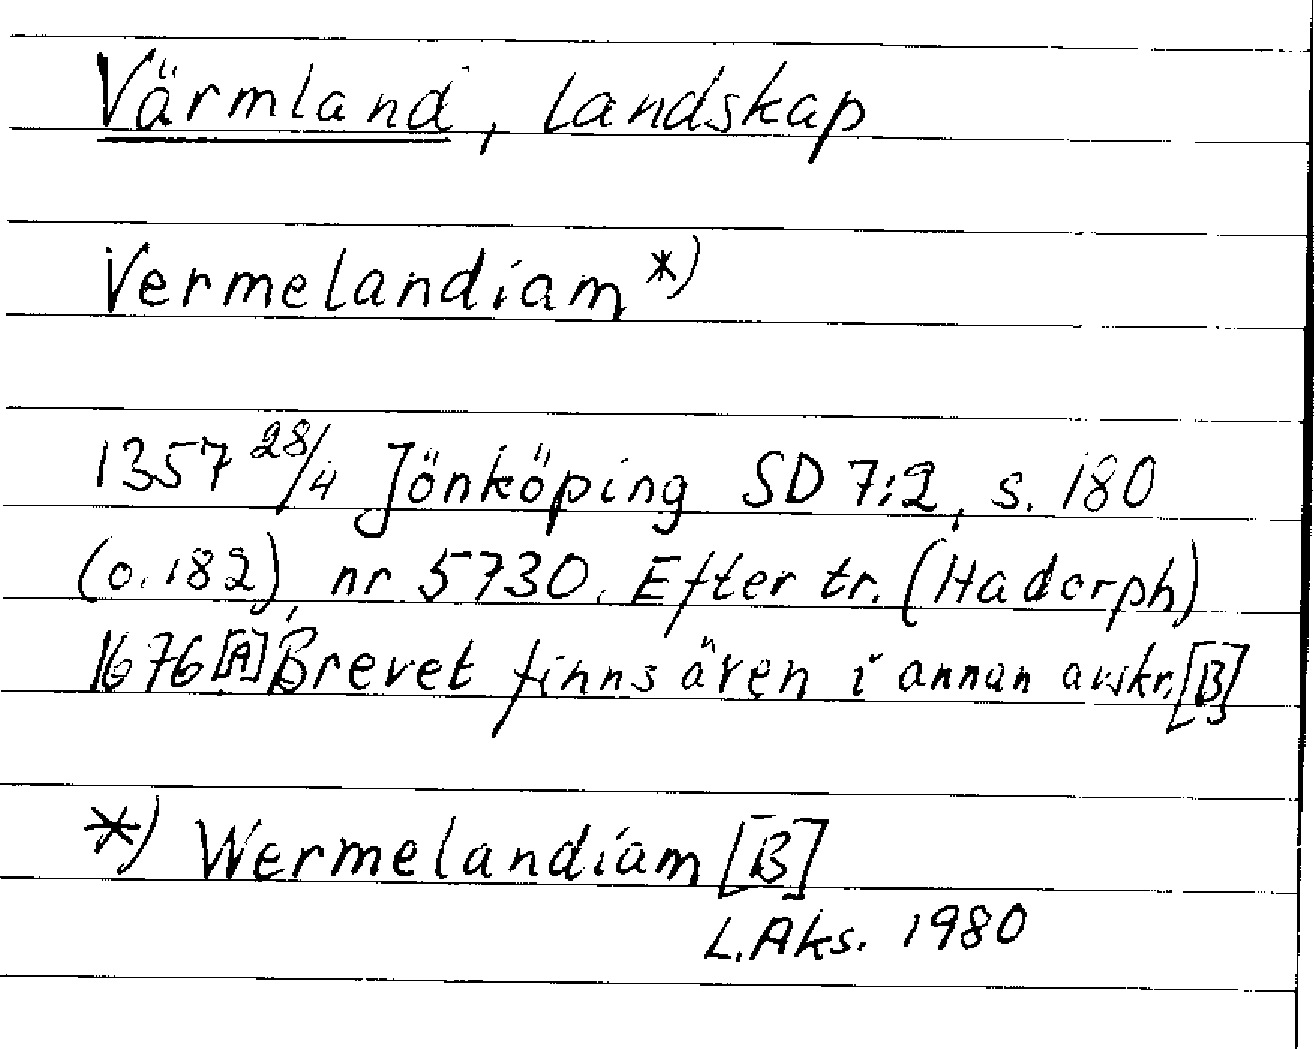 Värmland, landskap
Vermelandiam *)
1357 28/4 Jönköping SD 7:2, s. 180
(o. 182), nr 5730. Efter tr. (Hadorph)
1676 [A] Brevet finns även i annan avskr. [B]
*) Wermelandiam [B]
L. Aks. 1980